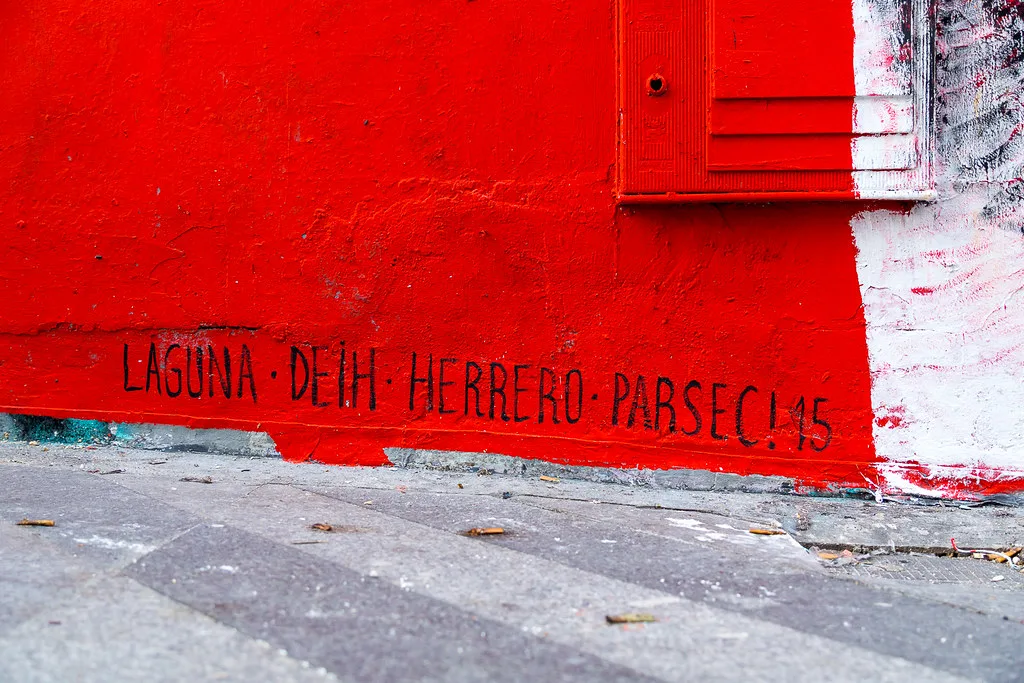 LAGUNA · DEIH · HERRERO · PARSEC! 15